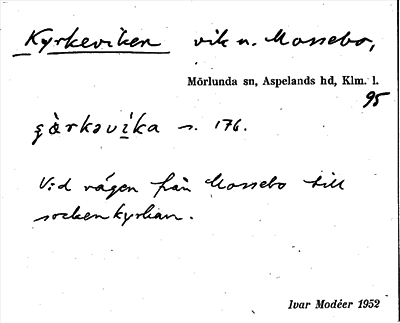 Kyrkeviken vik n. Mossebo,
Mörlunda sn, Aspelands hd, Klm. l.
95
s. 176.
Vid vägen från Mossebo till
sockenkyrkan.
Ivar Modéer 1952